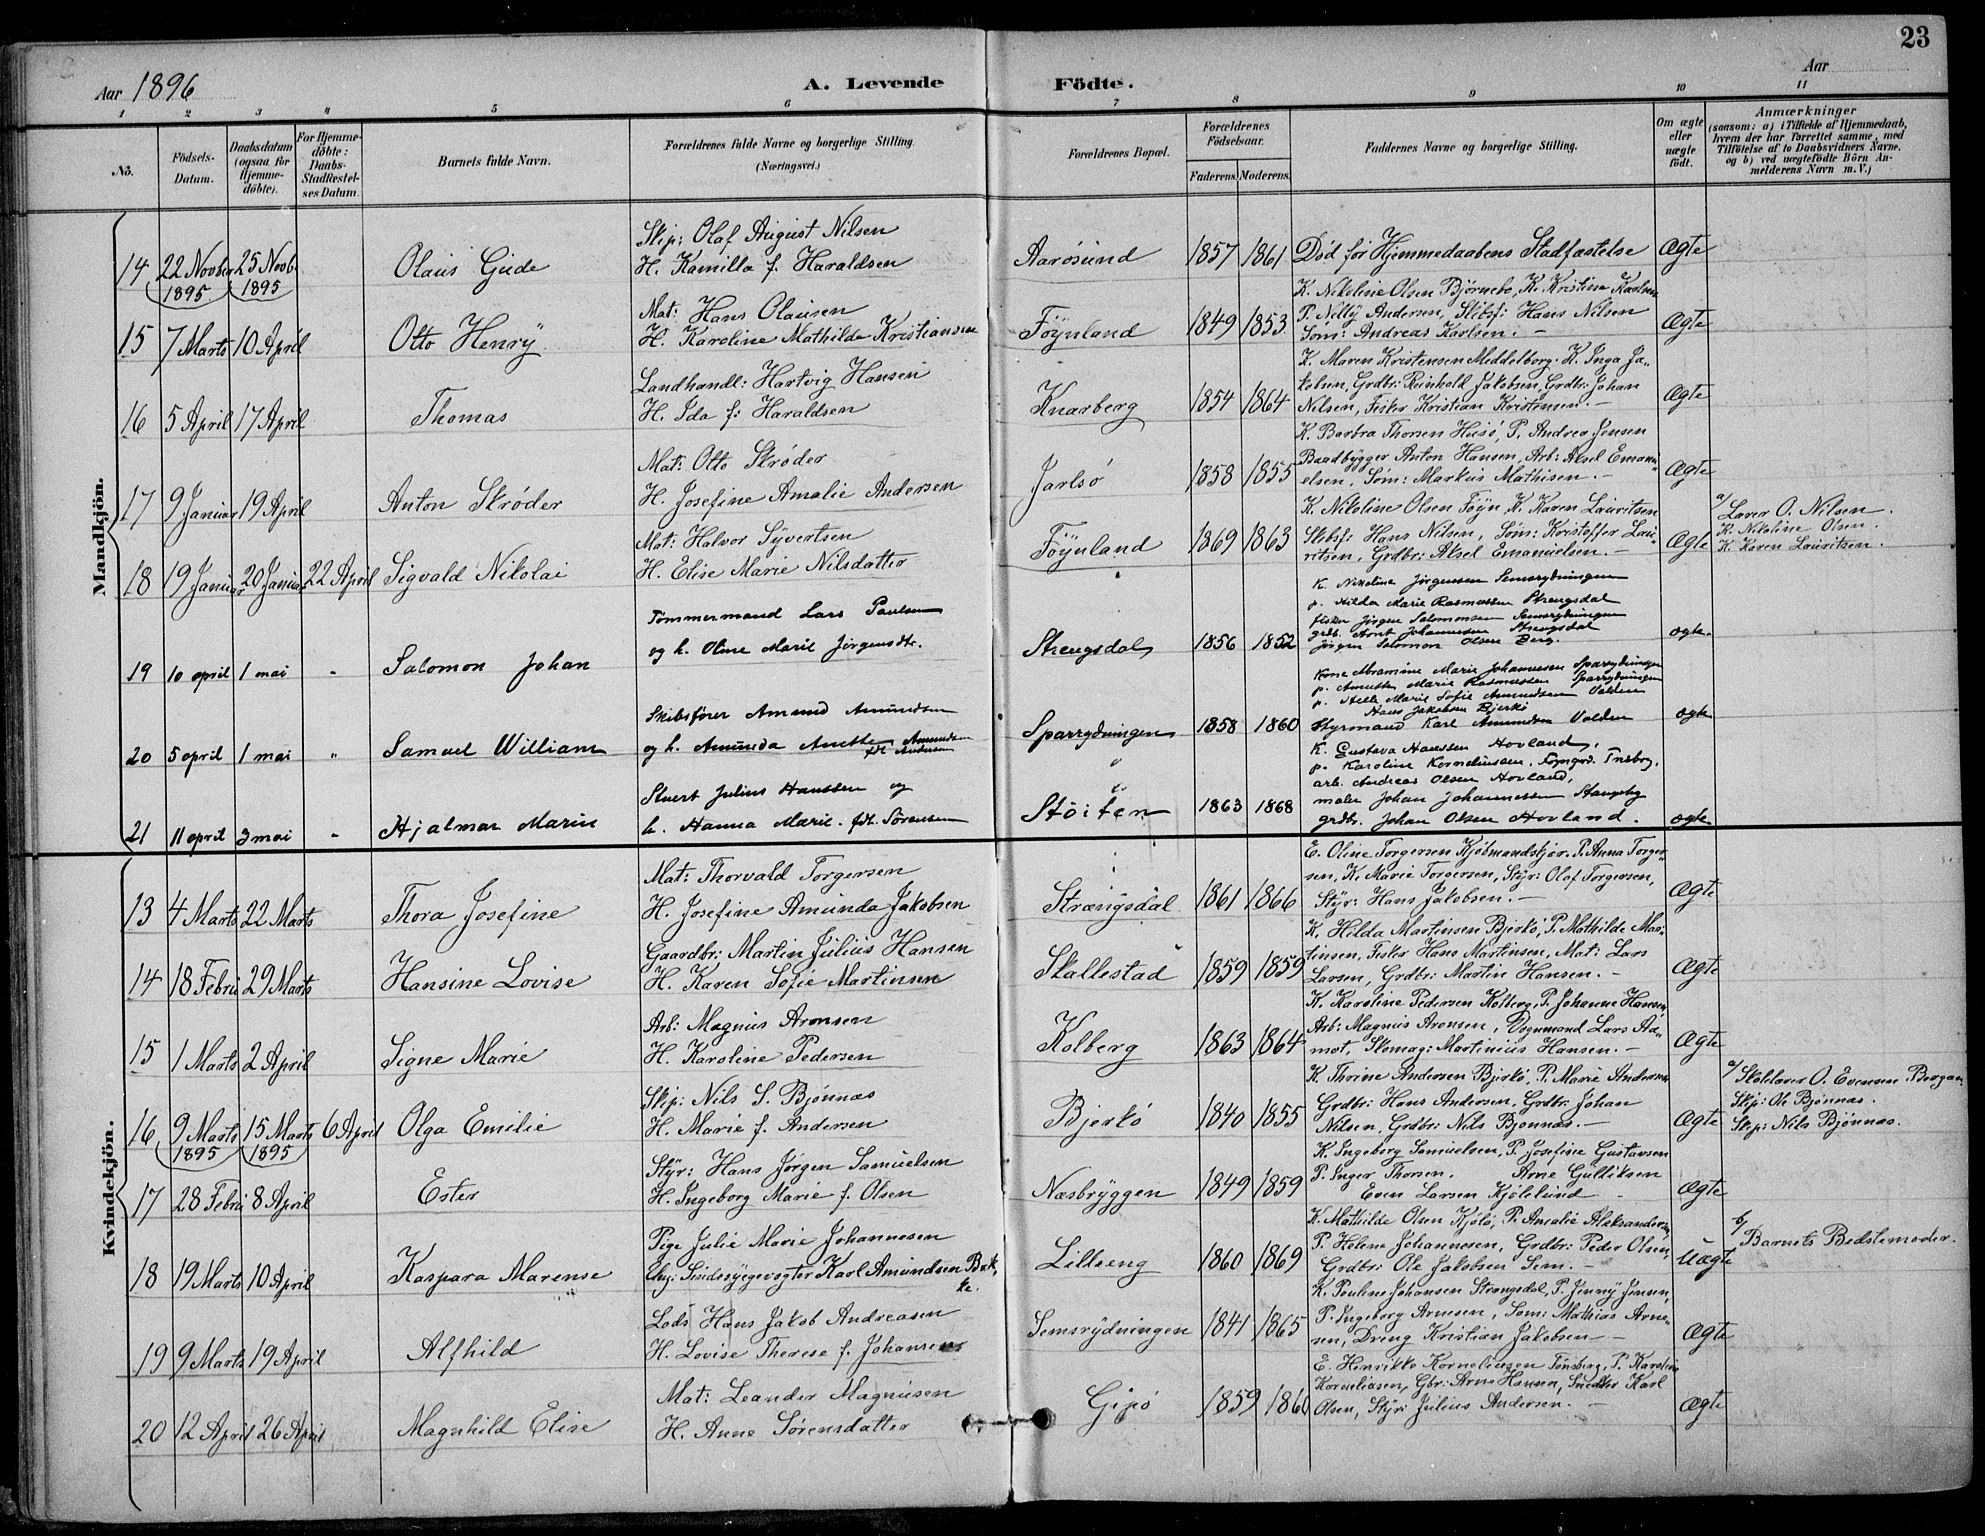 23
Aar 1896 A. Levende Födte. Aar
1 2 3 4 5 6 7 8 9 10 11
No. Födsels-Datum. Daabsdatum (ogsaa for Hjemme-döbte). For Hjemme-döbte: Daabs-Stadfæstel-ses Datum. Barnets fulde Navn. Forældrenes fulde Navne og borgerlige Stilling. (Næringsvei.) Forældrenes Bopæl. Forældrenes Födselsaar. Faderens. Moderens. Faddernes Navne og borgerlige Stilling. Om ægte eller uægte födt. Anmærkninger (saasom: a) i Tilfælde af Hjemmedaab, hvem der har forrettet samme, med Tilföielse af to Daabsvidners Navne. og b) ved uægtefödte Börn An-melderens Navn m. V.)
Mandkjön.
Skip: Olaf August Nilsen
14 22 Novber 1895 25 Novb. 1895 Olaus Gude H. Kamilla f. Haraldsen Aarösund 1857 1861 Död för Hjemmedaabens Stadfæstelse Ægte
K. Nikoline Olsen Bjørnebo, K. Kristine Karlsen
Mat: Hans Olausen
P. Nelly Andersen, Skibsf: Hans Nilsen
15 7 Marts 10 April Otto Henry H. Karoline Mathilde Kristiansen Föynland 1849 1853 Søm: Andreas Karlsen. — Ægte
K. Maren Kristensen Meddelborg. K. Inga Ja-
Landhandl: Hartvig Hansen
kobsen, Grdbr: Reinhold Jakobsen, Grdbr: Johan
16 5 April 17 April Thomas H. Ida f: Haraldsen Knarberg 1854 1864 Nilsen, Fisker Kristian Kristensen. — Ægte
K. Barbra Thorsen Husö, P. Andrea Jensen
Mat: Otto Skrøder
Baadbygger Anton Hansen, Arb: Aksel Emanu-
17 9 Januar 19 April Anton Skrøder H. Josefine Amalie Andersen Jarlsö 1858 1855 elsen, Søm: Markus Mathisen. — Ægte
K. Nikoline Olsen Föyn, K. Karen Lauritsen
Mat: Halvor Syvertsen
Skibsf: Hans Nilsen, Søm: Kristoffer Lau-
18 19 Januar 20 Januar 22 April Sigvald Nikolai H. Elise Marie Nilsdatter Föynland 1869 1863 ritsen, Grdbr: Aksel Emanuelsen. — Ægte
a/ Lærer O. Nilsen.
K. Nikoline Olsen.
K. Karen Lauritsen.
K. Nikoline Jörgensen Semsrydningen
p. Hilda Marie Rasmussen Strengsdal
Tömmermand Lars Paulsen
fisker Jörgen Salomonsen Semsrydningen
grdb. Arnt Johannesen Strengsdal
19 10 april 1 mai " Salomon Johan og h. Oline Marie Jörgensdtr. Strengsdal 1856 1852 Jörgen Salomon Olsen Berg ægte.
Kone Abramine Marie Johannessen Sparrydningen
p. Anette Marie Rasmussen Sparrydningen
p. Helle Marie Sofie Amundsen Valden
Skibsförer Amund Amundsen
Hans Jakobsen Bjerkö
20 5 april 1 mai " Samuel William og h. Amunda Anette Amundsen fdt. Andersen Sparrydningen 1858 1860 Styrmand Karl Amundsen Valden ægte
K. Gustava Hanssen Hovland,
p. Karoline Korneliussen,
Stuert Julius Hanssen og
arb. Andreas Olsen Hovland,
maler Johan Johannessen Stangeby
21 11 april 3 mai " Hjalmar Marin h. Hanna Marie. fdt. Sörensen Stöiten 1863 1868 grdbr. Johan Olsen Hovland. ægte
Kvindekjön.
E. Oline Torgersen Kjöbmandskjær. P. Anna Torger-
Mat: Thorvald Torgersen
sen, K. Marie Torgersen, Styr: Olaf Torgersen,
13 4 Marts 22 Marts Thora Josefine H. Josefine Amunda Jakobsen Strængsdal 1861 1866 Styr: Hans Jakobsen. — Ægte
K. Hilda Martinsen Bjerkö, P. Mathilde Mar-
Gaardbr: Martin Julius Hansen
tinsen, Fisker Hans Martinsen, Mat: Lars
14 18 Febru 29 Marts Hansine Lovise H. Karen Sofie Martinsen Skallestad 1859 1859 Larsen, Grdbr: Martin Hansen. — Ægte
K. Karoline Pedersen Kolberg, P. Johanne Hansen,
Arb: Magnus Aronsen
Arb: Magnus Aronsen, Vognmand Lars Aa-
15 1 Marts 2 April Signe Marie H. Karoline Pedersen Kolberg 1863 1864 mot, Skomag: Martinius Hansen. — Ægte
K. Thrine Andersen Bjerkö, P. Marie Andersen
Skip: Nils S. Bjönnæs
Grdbr: Hans Andersen, Grdbr: Johan
16 9 Marts 1895 15 Marts 1895 6 April Olga Emilie H. Marie f. Andersen Bjerkö 1840 1855 Nilsen, Grdbr: Nils Bjönnæs. — Ægte
a/ Skolelærer O. Evensen Bergan
Skip: Ole Bjönnæs.
Skip: Nils Bjönnæs.
K. Ingeborg Samuelsen, P. Josefine Gustavsen
Styr: Hans Jørgen Samuelsen
P. Inger Thorsen. Arne Gulliksen
17 28 Febru 8 April Ester H. Ingeborg Marie f. Olsen Næsbryggen 1849 1859 Even Larsen Kjölelund Ægte
K. Mathilde Olsen Kjölö, P. Amalie Aleksandersen,
Pige Julie Marie Johannesen
P. Helene Johannesen, Grdbr: Peder Olsen,
18 19 Marts 10 April Kaspara Marense Ung: Sindssygevogter Karl Amundsen Bakke. Lilleeng 1860 1869 Grdbr: Ole Jakobsen Sem. — Uægte
b/ Barnets Bedstemoder.
K. Pouline Johansen Strengsdal, P. Jenny Jensen,
Lods Hans Jakob Andreasen
P. Ingeborg Arnesen, Søm: Mathias Arne-
19 9 Marts 19 April Alfhild H. Lovise Therese f. Johansen Semsrydningen 1841 1865 sen, Dreng Kristian Jakobsen — Ægte
E. Henrikke Korneliussen Tönsberg, P. Karoline
Mat: Leander Magnusen
Korneliusen, Gbr: Arne Hansen, Snedker Karl
20 12 April 26 April Magnhild Elise H. Anne Sørensdatter Gipö 1859 1860 Olsen, Styr: Julius Andersen. — Ægte